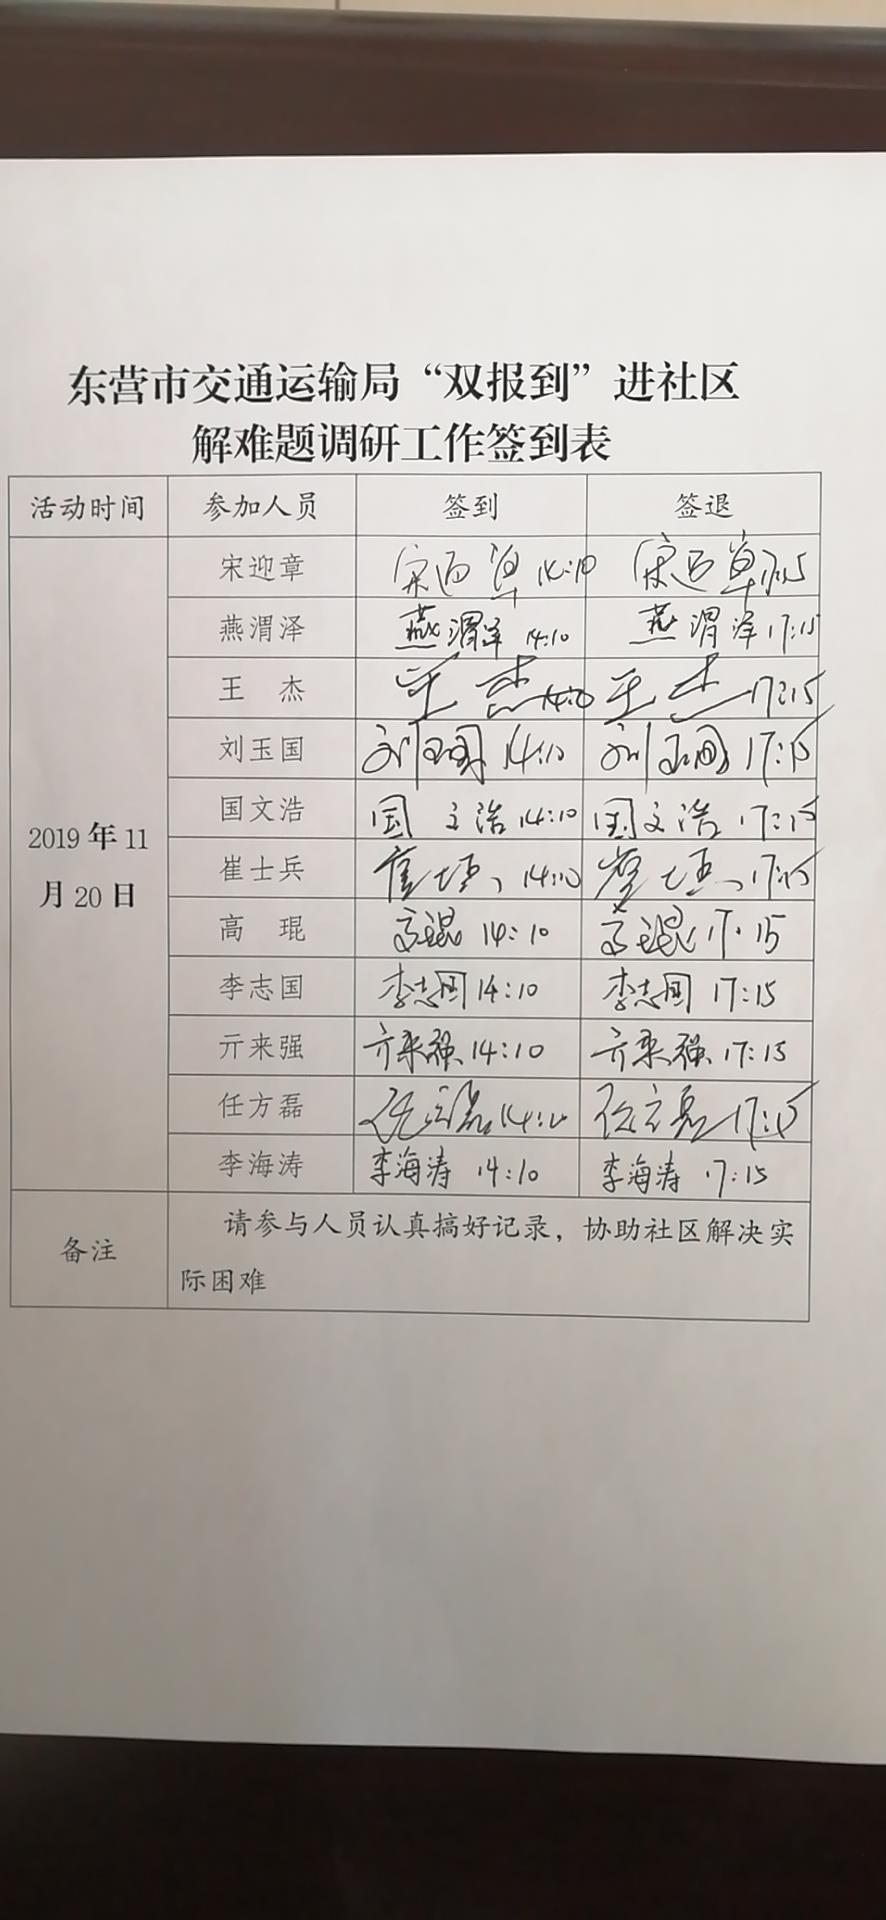 东营市交通运输局“双报到”进社区
解难题调研工作签到表
活动时间 参加人员 签到 签退
宋迎章 宋迎章 14:10 宋迎章 17:15
燕渭泽 燕渭泽 14:10 燕渭泽 17:15
王 杰 王杰 14:10 王杰 17:15
刘玉国 刘玉国 14:10 刘玉国 17:15
国文浩 国文浩 14:10 国文浩 17:15
2019年11
月20日
崔士兵 崔士兵 14:10 崔士兵 17:15
高 琨 高琨 14:10 高琨 17:15
李志国 李志国 14:10 李志国 17:15
亓来强 亓来强 14:10 亓来强 17:15
任方磊 任方磊 14:10 任方磊 17:15
李海涛 李海涛 14:10 李海涛 17:15
备注 请参与人员认真搞好记录，协助社区解决实
际困难